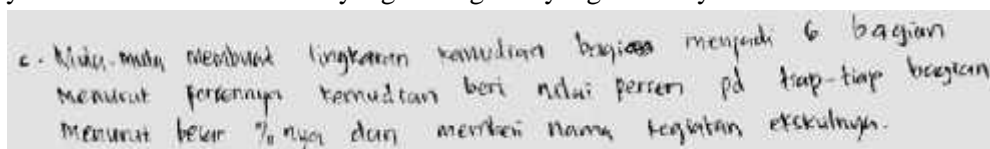 c. Mula-mula membuat lingkaran kemudian bagian menjadi 6 bagian
menurut persennya kemudian beri nilai persen pd tiap-tiap bagian
menurut besar % nya dan memberi nama kegiatan ekskulnya.